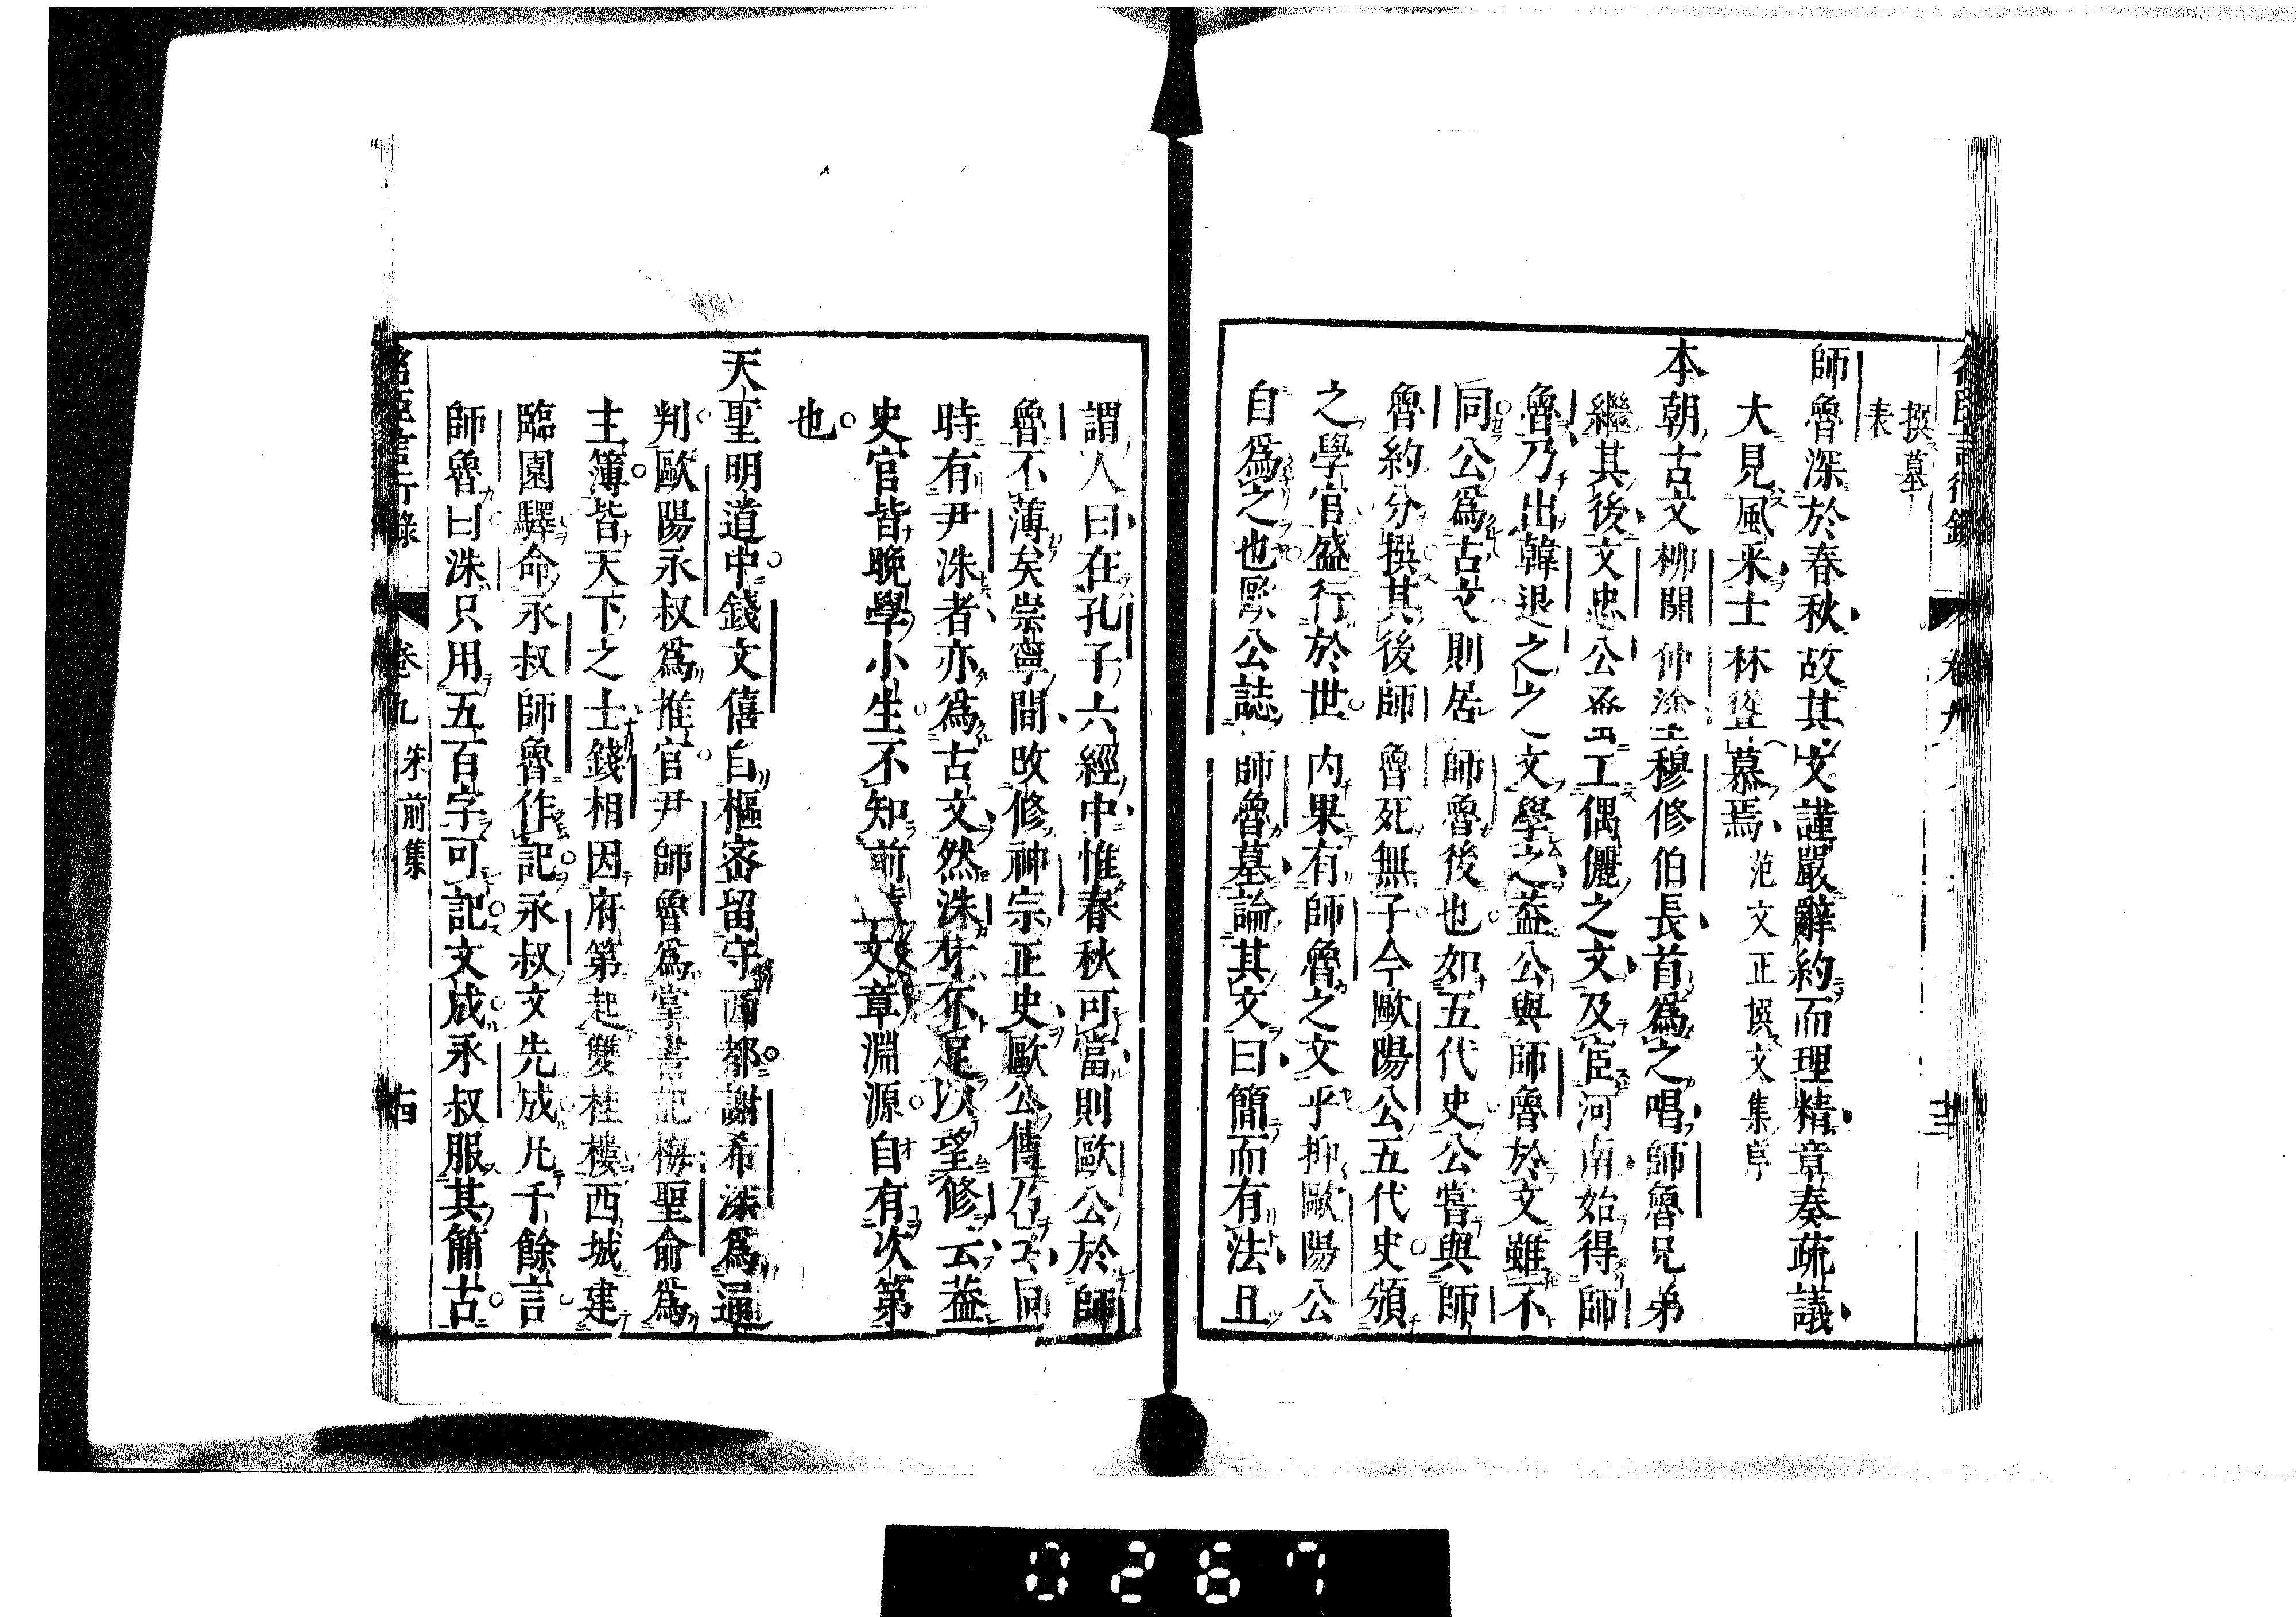 撰墓
表
師魯深於春秋故其文謹嚴辭約而理精章奏疏議
大見風采士林聳慕焉范文正撰文集序
本朝古文柳開仲塗穆修伯長首爲之唱師魯兄弟
繼其後文忠公工偶儷之文及宦河南始得師
魯乃出韓退之之文學之益公與師魯於文雖不
同公爲古文則居師魯後也如五代史公嘗與師
魯約分撰其後師魯死無子今歐陽公五代史頒
之學官盛行於世內果有師魯之文乎抑歐陽公
自爲之也歐公誌師魯墓論其文曰簡而有法且
謂人曰在孔子六經中惟春秋可當則歐公於師
魯不薄矣崇寧間改修神宗正史歐公傳乃云同
時有尹洙者亦爲古文然洙材不足以望修云蓋
史官皆晚學小生不知前文章淵源自有次第
也
天聖明道中錢文僖自樞密留守西都謝希深爲通
判歐陽永叔爲推官尹師魯爲掌書記梅聖俞爲
主簿皆天下之士錢相因府第起雙桂樓西城建
臨園驛命永叔師魯作記永叔文先成凡千餘言
師魯曰洙只用五百字可記文成永叔服其簡古
名臣言行錄 卷九 宋前集 十四